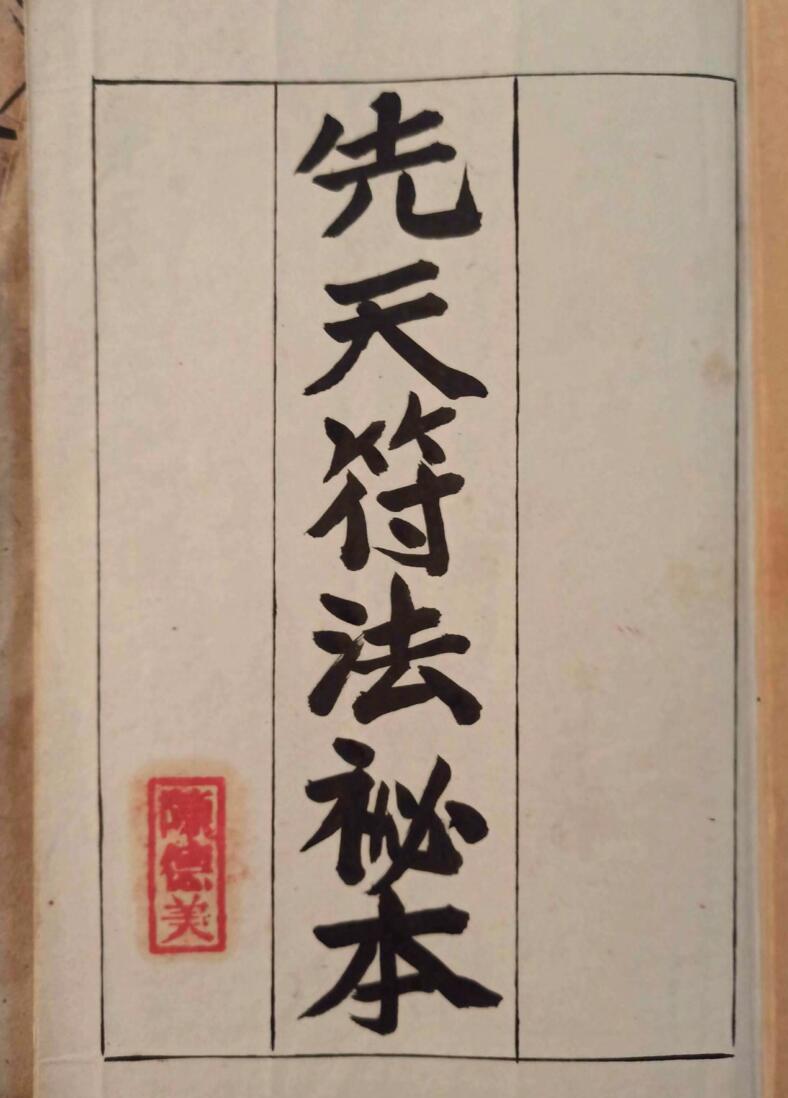 先天符法祕本
陳德美